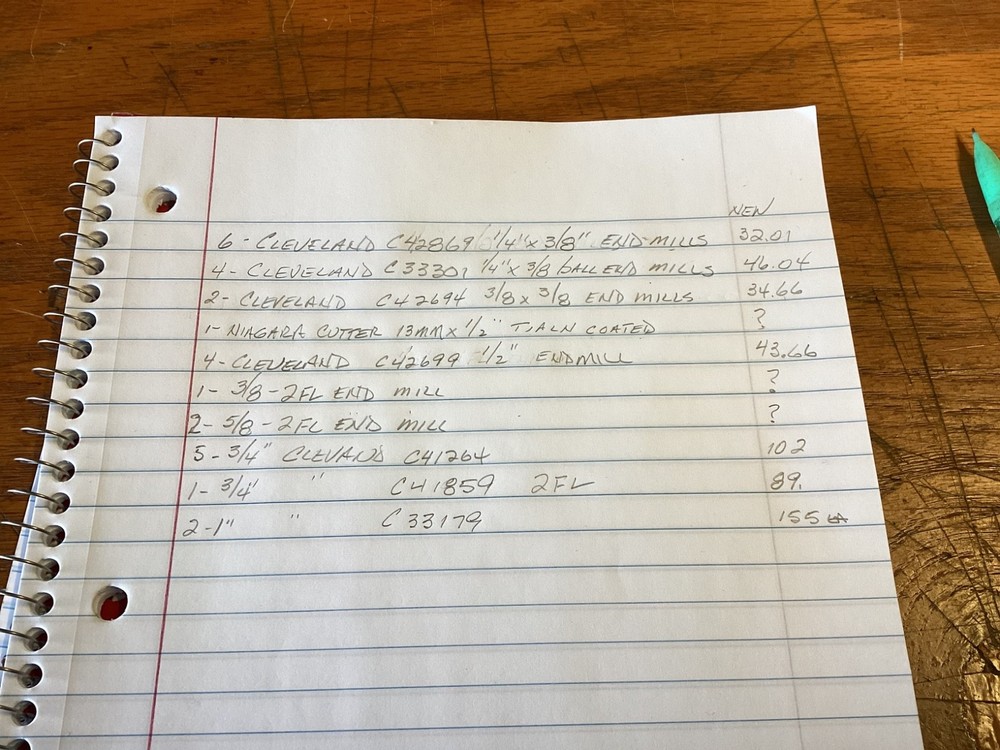 NEW
6 - CLEVELAND C42869 1/4" x 3/8" END MILLS 32.01
4 - CLEVELAND C33301 1/4" x 3/8 BALL END MILLS 46.04
2 - CLEVELAND C42694 3/8 x 3/8 END MILLS 34.66
1 - NIAGARA CUTTER 13MM x 1/2" TIALN COATED ?
4 - CLEVELAND C42699 1/2" ENDMILL 43.66
1 - 3/8 - 2FL END MILL ?
2 - 5/8 - 2FL END MILL ?
5 - 3/4" CLEVAND C41264 102
1 - 3/4" " C41859 2FL 89.
2 - 1" " C33179 155 EA